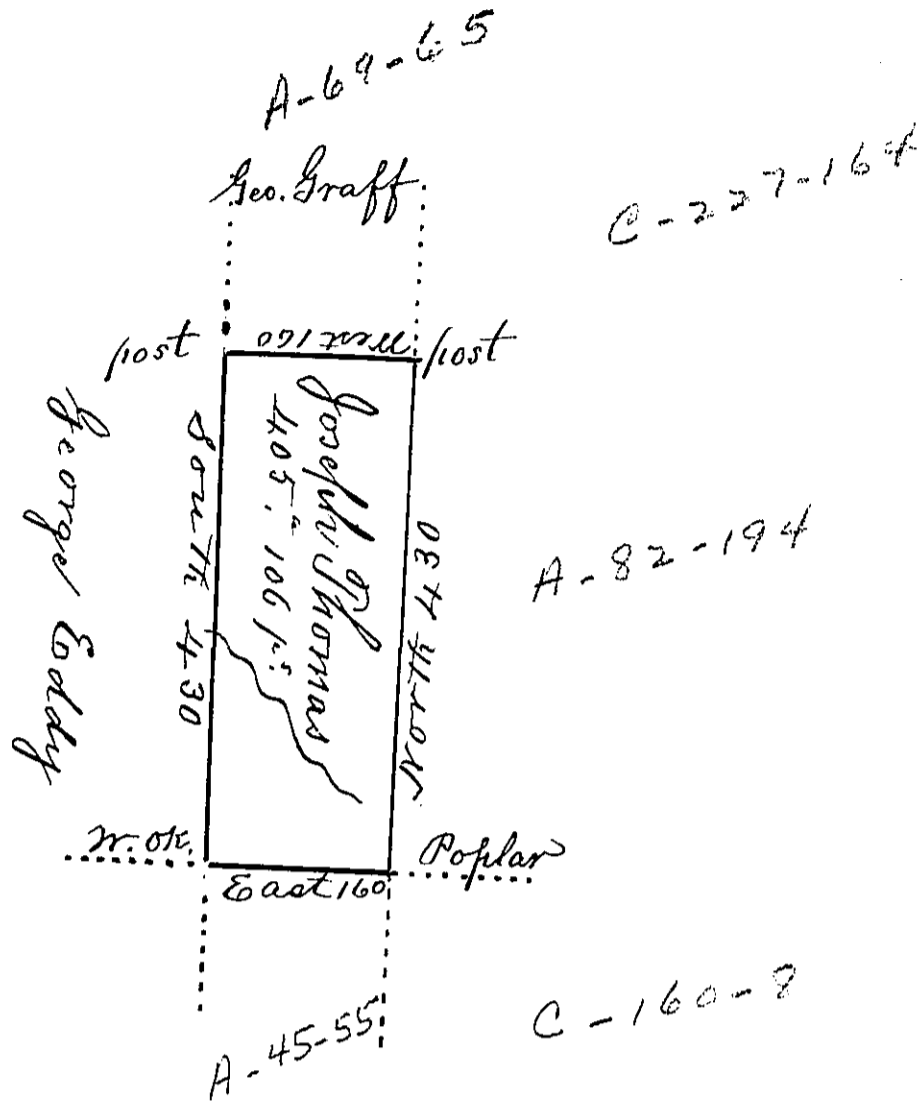 A-69-65
Geo. Graff
C-227-164
post
West 160
post
George Eddy
South 430
Joseph Thomas
405.a 106 ps
North 430
A-82-194
W. ok.
Poplar
East 160
A-45-55
C-160-8